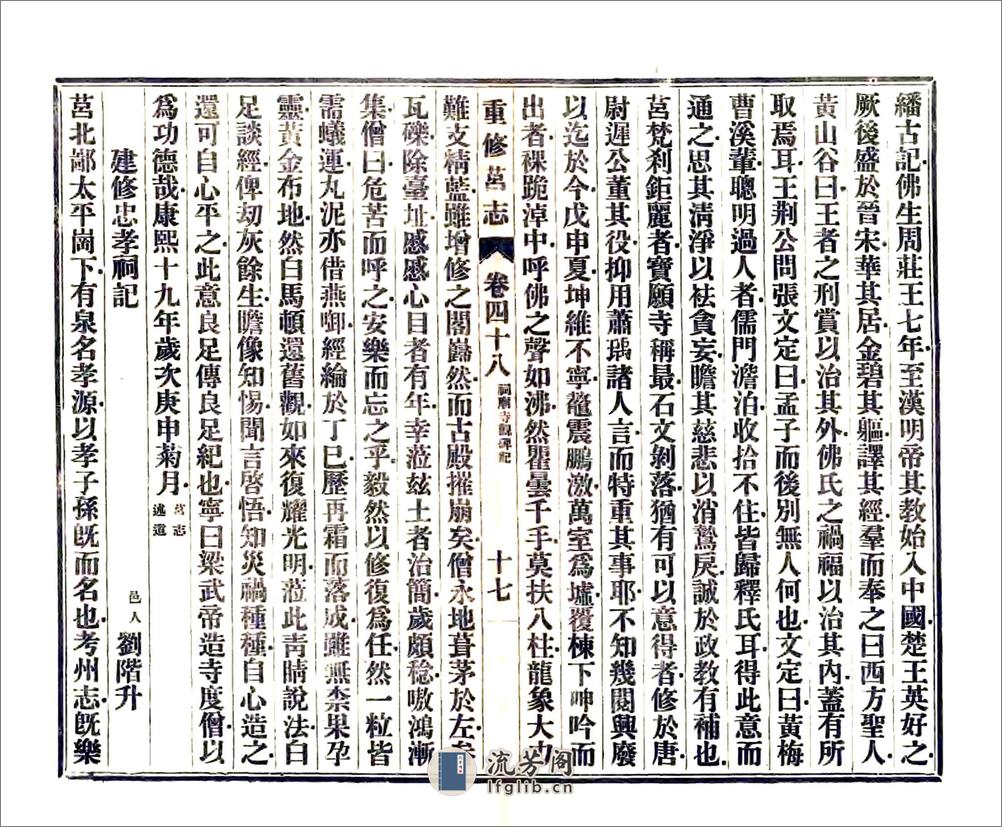 繙古記佛生周莊王七年至漢明帝其教始入中國楚王英好之
厥後盛於晉宋華其居金碧其軀譯其經羣而奉之曰西方聖人
黃山谷曰王者之刑賞以治其外佛氏之禍福以治其內蓋有所
取焉耳王荆公問張文定曰孟子而後別無人何也文定曰黃梅
曹溪輩聰明過人者儒門澹泊收拾不住皆歸釋氏耳得此意而
通之思其清淨以袪貪妄瞻其慈悲以消鷙戾誠於政教有補也
莒梵刹鉅麗者寶願寺稱最石文剝落猶有可以意得者修於唐
尉遲公董其役抑用蕭瑀諸人言而特重其事耶不知幾閱興廢
以迄於今戊申夏坤維不寧鼇震鵬激萬室爲墟覆棟下呻吟而
出者裸跪淖中呼佛之聲如沸然瞿曇千手莫扶八柱龍象大力
重修莒志 卷四十八 祠廟寺觀碑記 十七
難支精藍雖增修之閣巋然而古殿摧崩矣僧永地葺茅於左
瓦礫除臺址慼慼心目者有年幸蒞玆土者治簡歲頗稔嗷鴻漸
集僧曰危苦而呼之安樂而忘之乎毅然以修復爲任然一粒皆
需蟻運丸泥亦借燕啣經綸於丁巳歷再霜而落成雖無柰果孕
靈黃金布地然白馬頓還舊觀如來復耀光明蒞此靑睛說法白
足談經俾劫灰餘生瞻像知惕聞言啓悟知災禍種種自心造之
還可自心平之此意良足傳良足紀也寧曰梁武帝造寺度僧以
爲功德哉康熙十九年歲次庚申菊月 莒志述遺
建修忠孝祠記 邑人 劉階升
莒北鄙太平崗下有泉名孝源以孝子孫旣而名也考州志旣樂
流芳阁
lfglib.cn